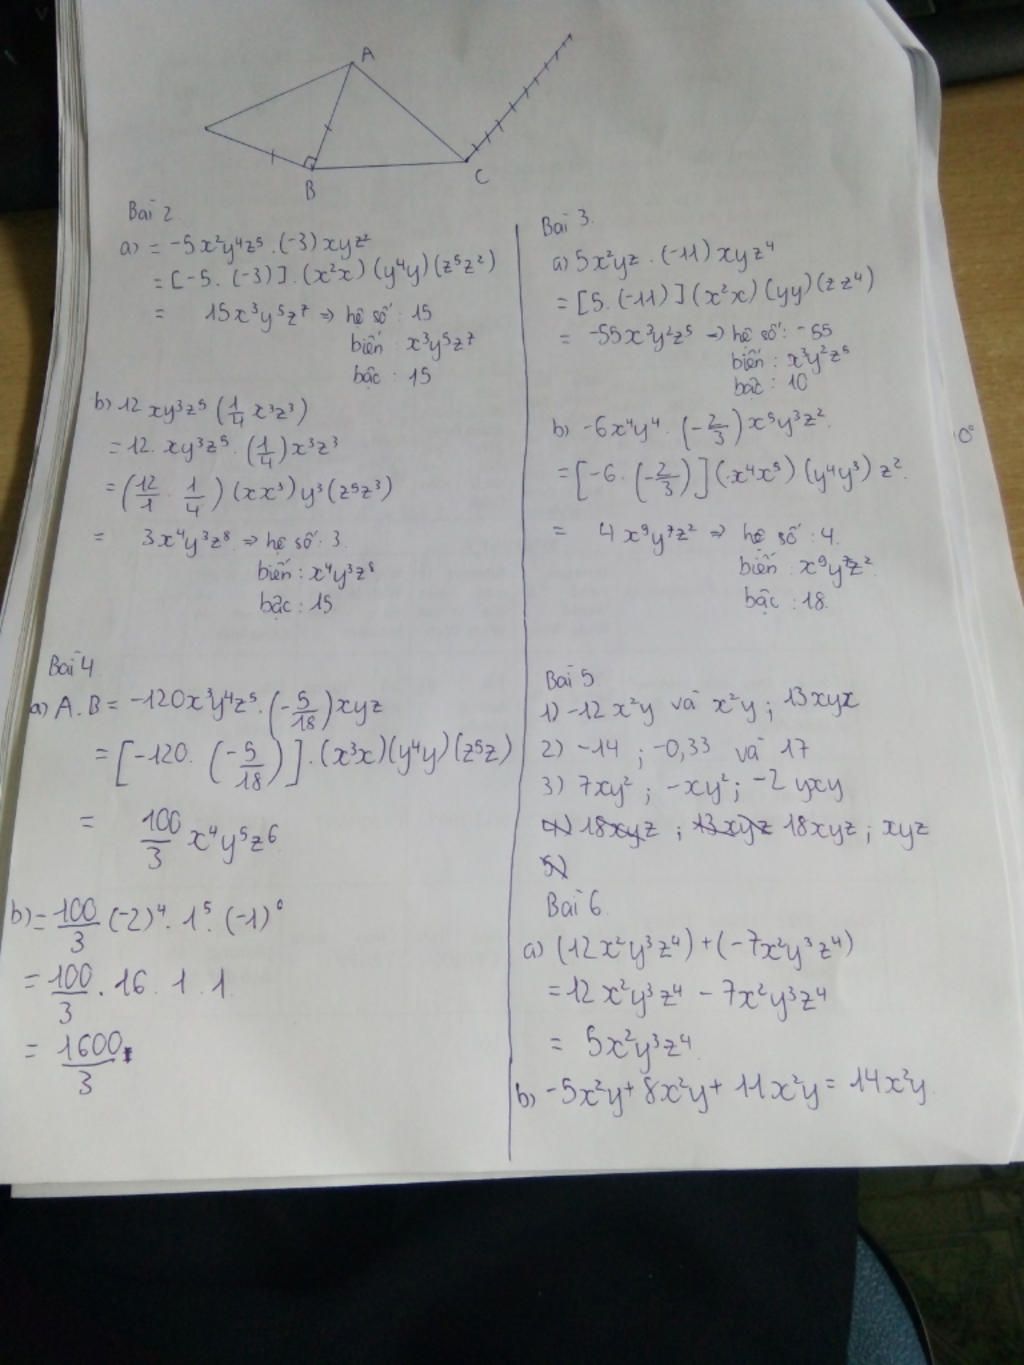 A
B
C
Bài 2
a) = -5x²y⁴z⁵ . (-3) xyz²
= [-5 . (-3)] . (x²x) (y⁴y) (z⁵z²)
= 15x³y⁵z⁷ ⇒ hệ số : 15
biến : x³y⁵z⁷
bậc : 15
b) 12 xy³z⁵ (1/4 x³z³)
= 12 . xy³z⁵ . (1/4) x³z³
= (12/1 . 1/4) (xx³) y³ (z⁵z³)
= 3x⁴y³z⁸ ⇒ hệ số : 3
biến : x⁴y³z⁸
bậc : 15
Bài 3.
a) 5x²yz . (-11) xyz⁴
= [5 . (-11)] (x²x) (yy) (zz⁴)
= -55x³y²z⁵ ⇒ hệ số : -55
biến : x³y²z⁵
bậc : 10
b) -6x⁴y⁴ . (-2/3) x⁵y³z².
= [-6 . (-2/3)] (x⁴x⁵) (y⁴y³) z².
= 4x⁹y⁷z² ⇒ hệ số : 4.
biến : x⁹y⁷z².
bậc : 18.
Bài 4
a) A . B = -120x³y⁴z⁵ . (-5/18) xyz
= [-120 . (-5/18)] . (x³x) (y⁴y) (z⁵z)
= 100/3 x⁴y⁵z⁶
b) = 100/3 (-2)⁴ . 1⁵ . (-1)⁶
= 100/3 . 16 . 1 . 1
= 1600/3
Bài 5
1) -12x²y và x²y ; 13xyx
2) -14 ; -0,33 và 17
3) 7xy² ; -xy² ; -2yxy
4) 18xyz ; 13xyz 18xyz ; xyz
5)
Bài 6
a) (12x²y³z⁴) + (-7x²y³z⁴)
= 12x²y³z⁴ - 7x²y³z⁴
= 5x²y³z⁴
b) -5x²y + 8x²y + 11x²y = 14x²y.